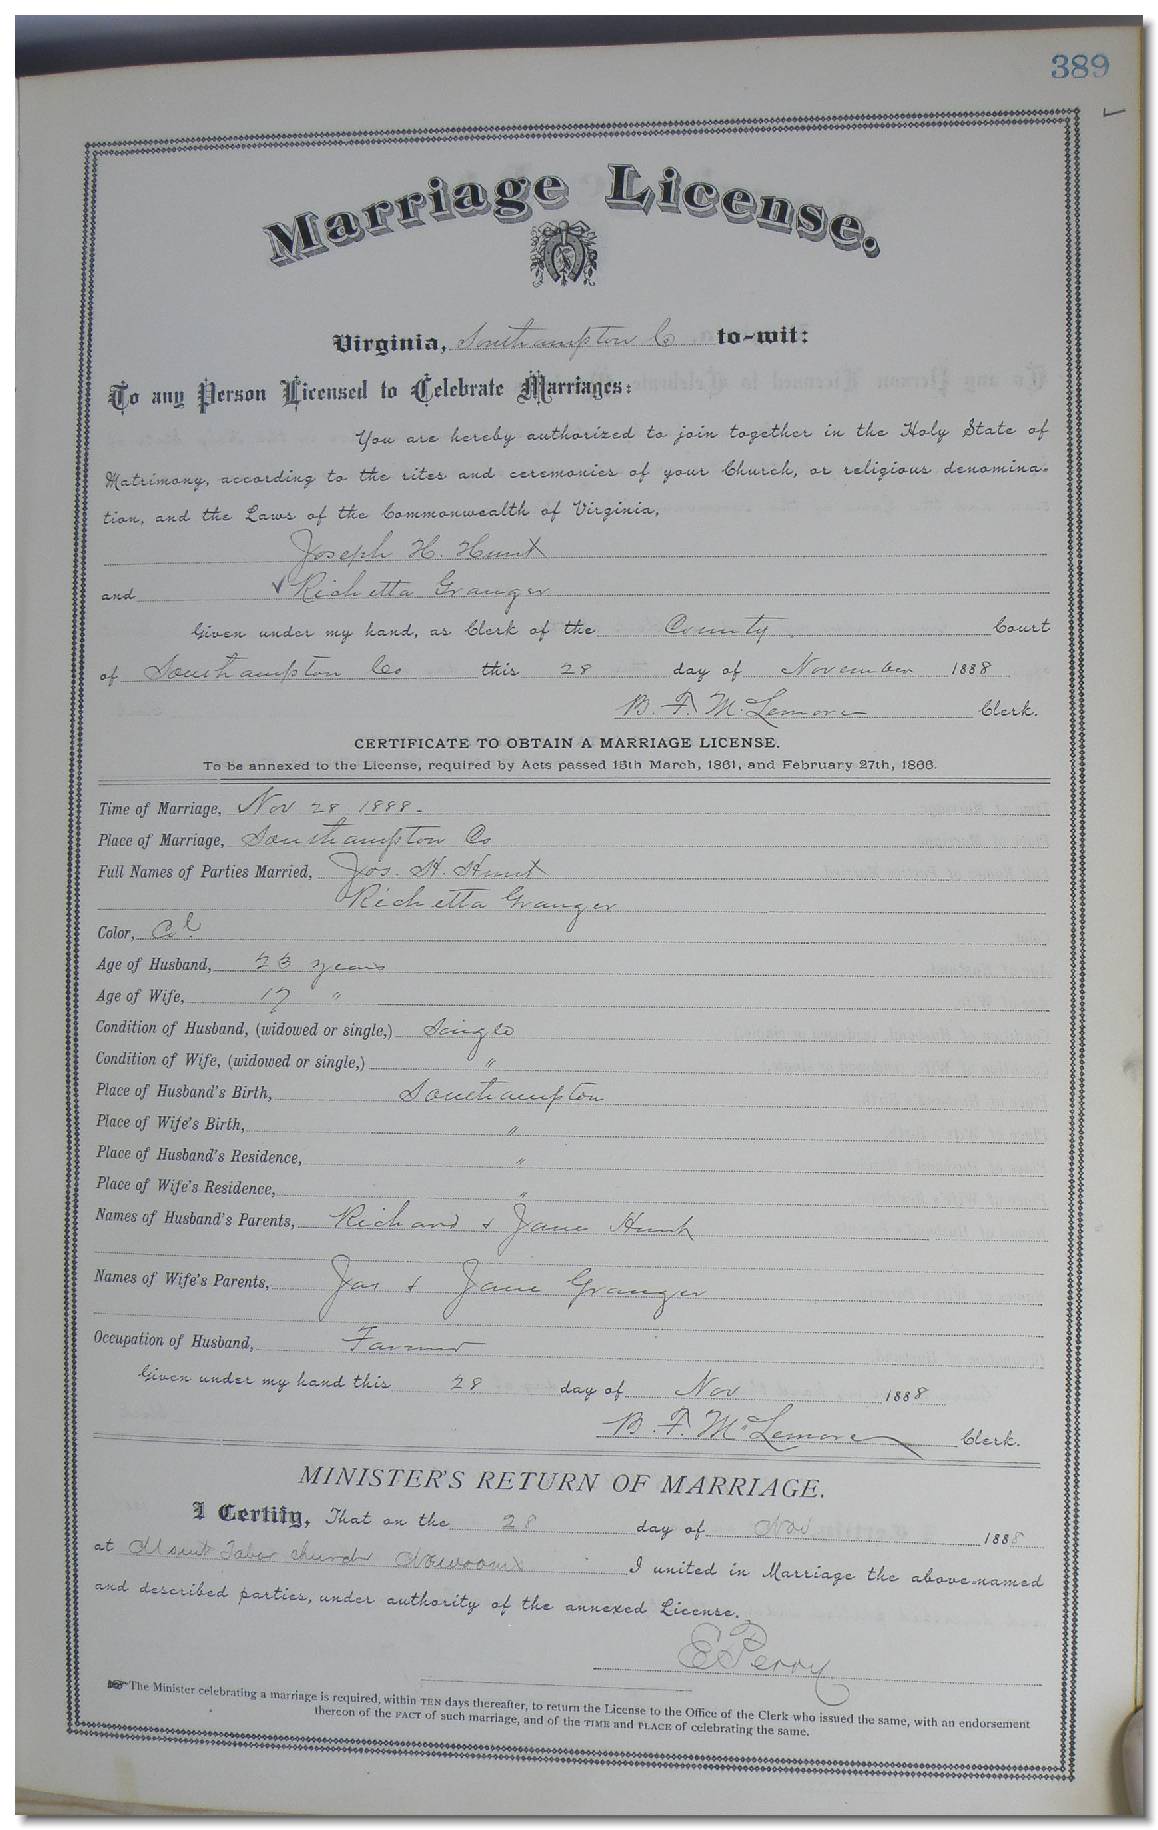 389
Marriage License.
Virginia, Southampton Co to-wit:
To any Person Licensed to Celebrate Marriages:
You are hereby authorized to join together in the Holy State of
Matrimony, according to the rites and ceremonies of your Church, or religious denomina-
tion, and the Laws of the Commonwealth of Virginia,
Joseph H. Hunt
and Richetta Granger
Given under my hand, as Clerk of the County Court
of Southampton Co this 28 day of November 1888
B. F. McLemore Clerk.
CERTIFICATE TO OBTAIN A MARRIAGE LICENSE.
To be annexed to the License, required by Acts passed 15th March, 1861, and February 27th, 1866.
Time of Marriage, Nov 28 1888.
Place of Marriage, Southampton Co
Full Names of Parties Married, Jos. H. Hunt
Richetta Granger
Color, Col.
Age of Husband, 23 years
Age of Wife, 17 "
Condition of Husband, (widowed or single,) Single
Condition of Wife, (widowed or single,) "
Place of Husband's Birth, Southampton
Place of Wife's Birth, "
Place of Husband's Residence, "
Place of Wife's Residence, "
Names of Husband's Parents, Richard & Jane Hunt
Names of Wife's Parents, Jas & Jane Granger
Occupation of Husband, Farmer
Given under my hand this 28 day of Nov 1888
B. F. McLemore Clerk.
MINISTER'S RETURN OF MARRIAGE.
I Certify, That on the 28 day of Nov 1888
at Mount Tabor church I united in Marriage the above-named
and described parties, under authority of the annexed License.
E Perry
The Minister celebrating a marriage is required, within TEN days thereafter, to return the License to the Office of the Clerk who issued the same, with an endorsement
thereon of the FACT of such marriage, and of the TIME and PLACE of celebrating the same.